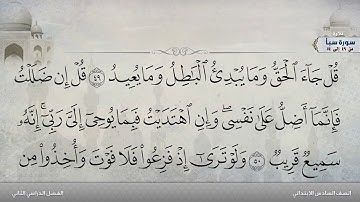 سورة سبأ
من ٤٩ إلى ٥٤
قُلْ جَآءَ ٱلْحَقُّ وَمَا يُبْدِئُ ٱلْبَٰطِلُ وَمَا يُعِيدُ ٤٩ قُلْ إِن ضَلَلْتُ
فَإِنَّمَآ أَضِلُّ عَلَىٰ نَفْسِىۖ وَإِنِ ٱهْتَدَيْتُ فَبِمَا يُوحِىٓ إِلَىَّ رَبِّىٓۚ إِنَّهُۥ
سَمِيعٌ قَرِيبٌ ٥٠ وَلَوْ تَرَىٰٓ إِذْ فَزِعُوا۟ فَلَا فَوْتَ وَأُخِذُوا۟ مِن
الصف السادس الابتدائي
الفصل الدراسي الثاني